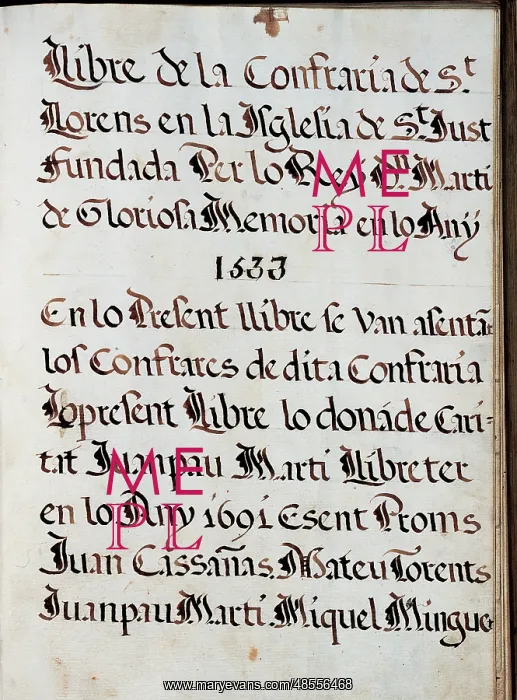 Llibre de la Confraria de S.t
Llorens en la Isglesia de S.t Just
Fundada Per lo Rey D.n Marti
de Gloriosa Memoria en lo Any
1633
En lo Present llibre se van asentãt
los Confrares de dita Confraria
Lo present Llibre lo donà de Cari=
tat Juanpau Marti Llibreter
en lo Any 1691 Esent Proms
Juan Cassañas. Mateu Torents
Juanpau Marti. Miquel Mingue
ME
PL
ME
PL
www.maryevans.com/48556468